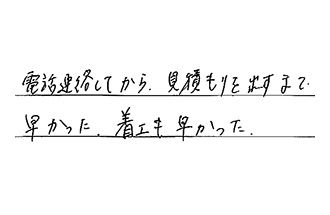 電話連絡してから、見積もりを出すまで
早かった。着工も早かった。